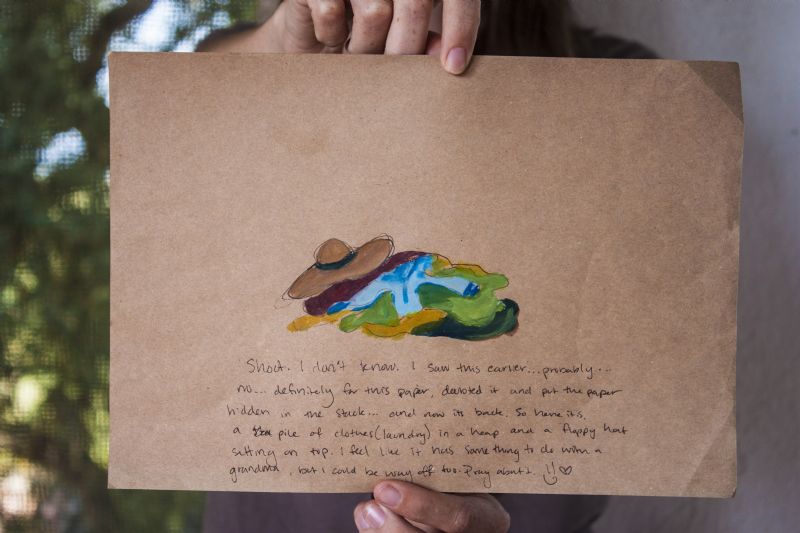 Shoot. I don't know. I saw this earlier... probably...
no... definitely for this paper, doubted it and put the paper
hidden in the stack... and now its back. So here it is.
a pile of clothes (laundry) in a heap and a floppy hat
sitting on top. I feel like it has something to do with a
grandma, but I could be way off too. Pray about it.